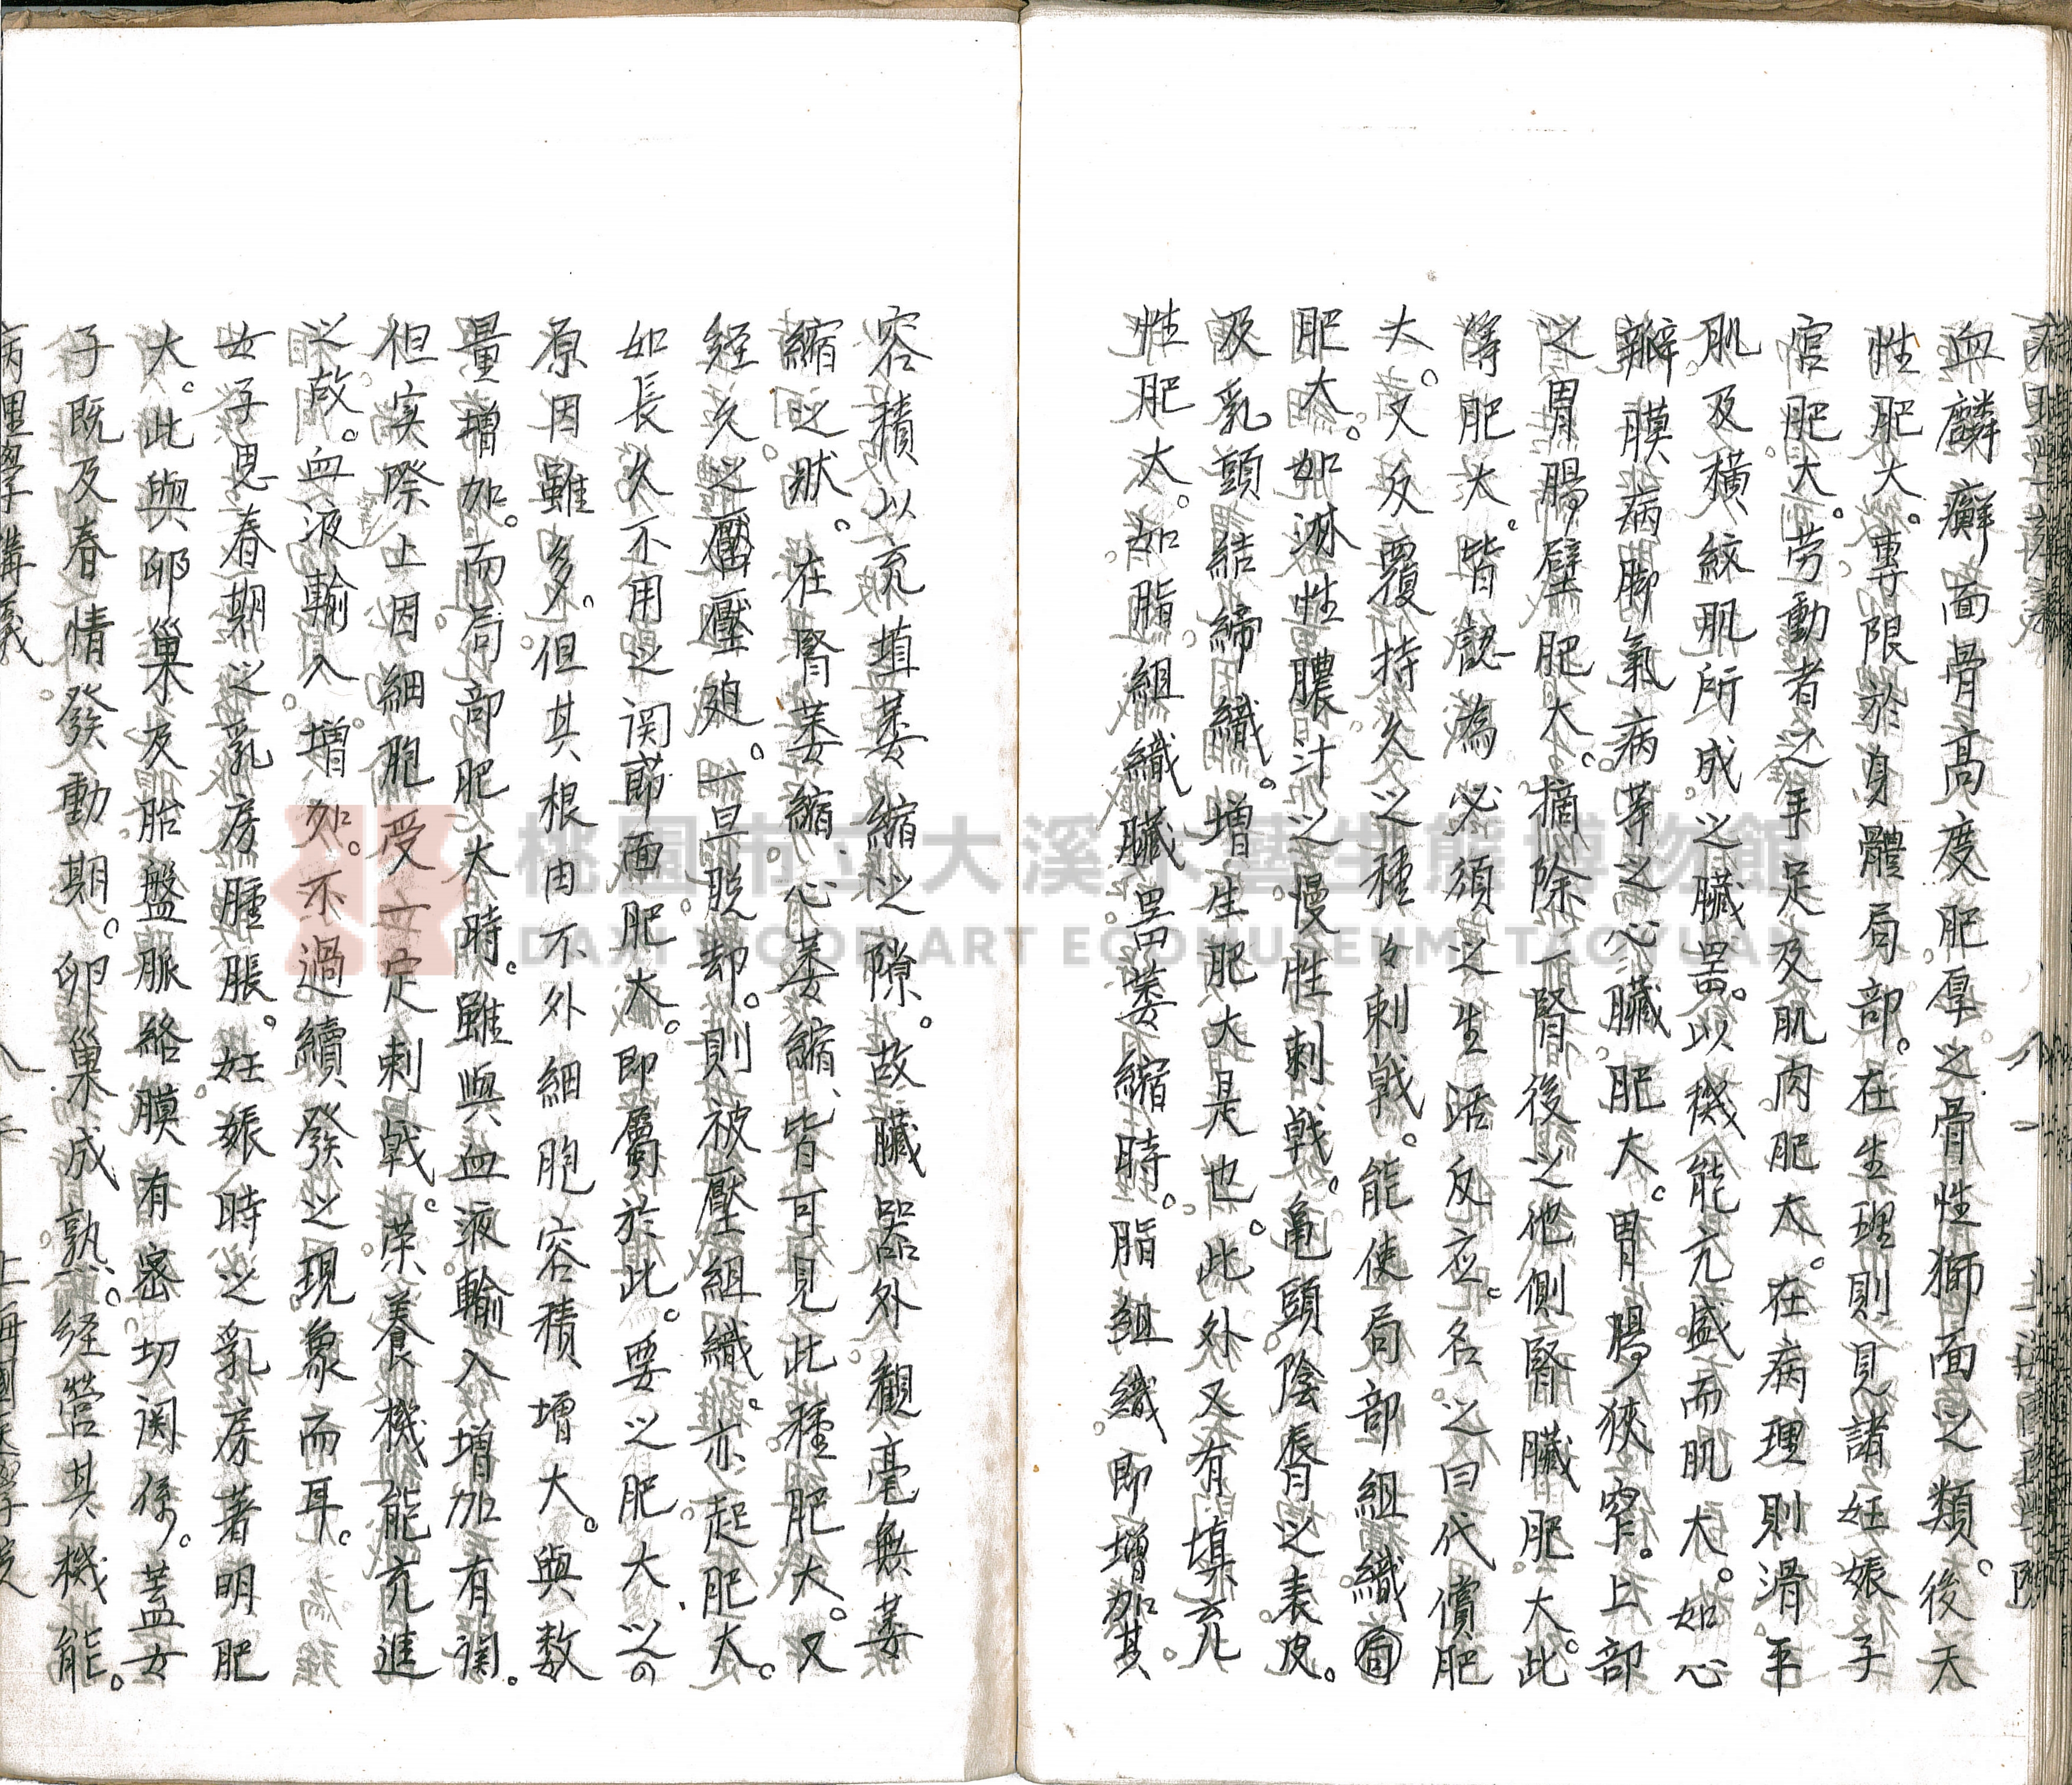 血麟癬面骨高度肥厚之骨性獅面之類。後天
性肥大。專限於身體局部。在生理則見諸妊娠子
宮肥大。劳動者之手足及肌肉肥大。在病理則滑平
肌及橫紋肌所成。之臟器。以機能亢盛而肌大。如心
瓣膜病脚氣病等之心臟。肥大。胃腸狹窄。上部
之胃腸壁肥大。摘除一腎後之他側腎臟肥。大。此
等肥大。皆認為必須之生活反应。名。之曰代償肥
大。又反覆持久之種々刺戟。能使局部組織
肥大。如淋性膿汁之慢性刺戟。亀頭陰唇之表皮。
及乳頭結締織。增生肥大是也。此外又有填充
性肥大。如脂組織臟器萎縮時。脂組織。即增加其
容積以充填萎縮之隙。故臟器外觀毫無萎
縮之狀。在腎萎縮、心萎縮、皆可見此種肥大。又
經久之壓迫。一旦脫却。則被壓組織。亦起肥大。
如長久不用之関節面肥大。即屬於此。要之肥大之の
原因雖多。但其根由不外細胞容積增大。與数
量增加。而局部肥大時。雖與血液輸入增加有関。
但实際上因細胞受一定刺戟。荣養機能亢進
之故。血液輸入。增加。不過續發之現象而耳。
女子思春期之乳房腫脹。妊娠時之乳房著明肥
大。此與卵巢及胎盤脈絡膜有密切関係。蓋女
子既及春情發動期。卵巢成熟、経營其機能。
病理學講義
八二
上海國醫學院
八一